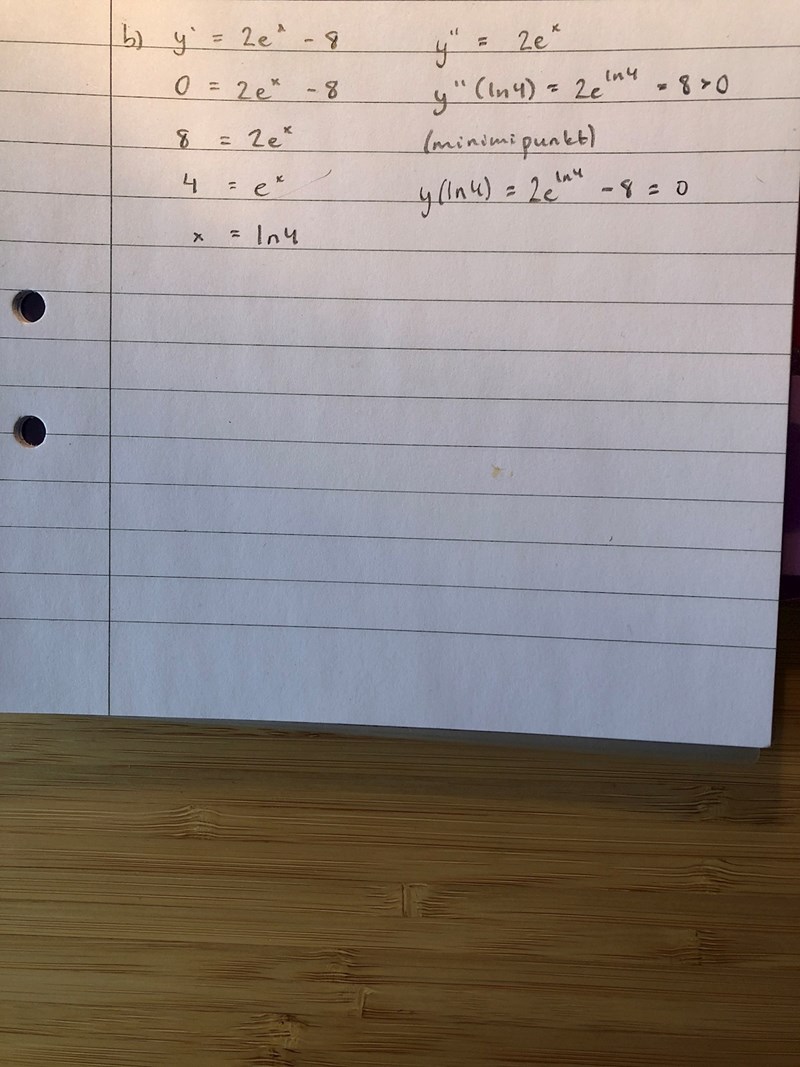 b) y' = 2e^x - 8
0 = 2e^x - 8
8 = 2e^x
4 = e^x
x = ln4
y'' = 2e^x
y''(ln4) = 2e^ln4 = 8 > 0
(minimipunkt)
y(ln4) = 2e^ln4 - 8 = 0